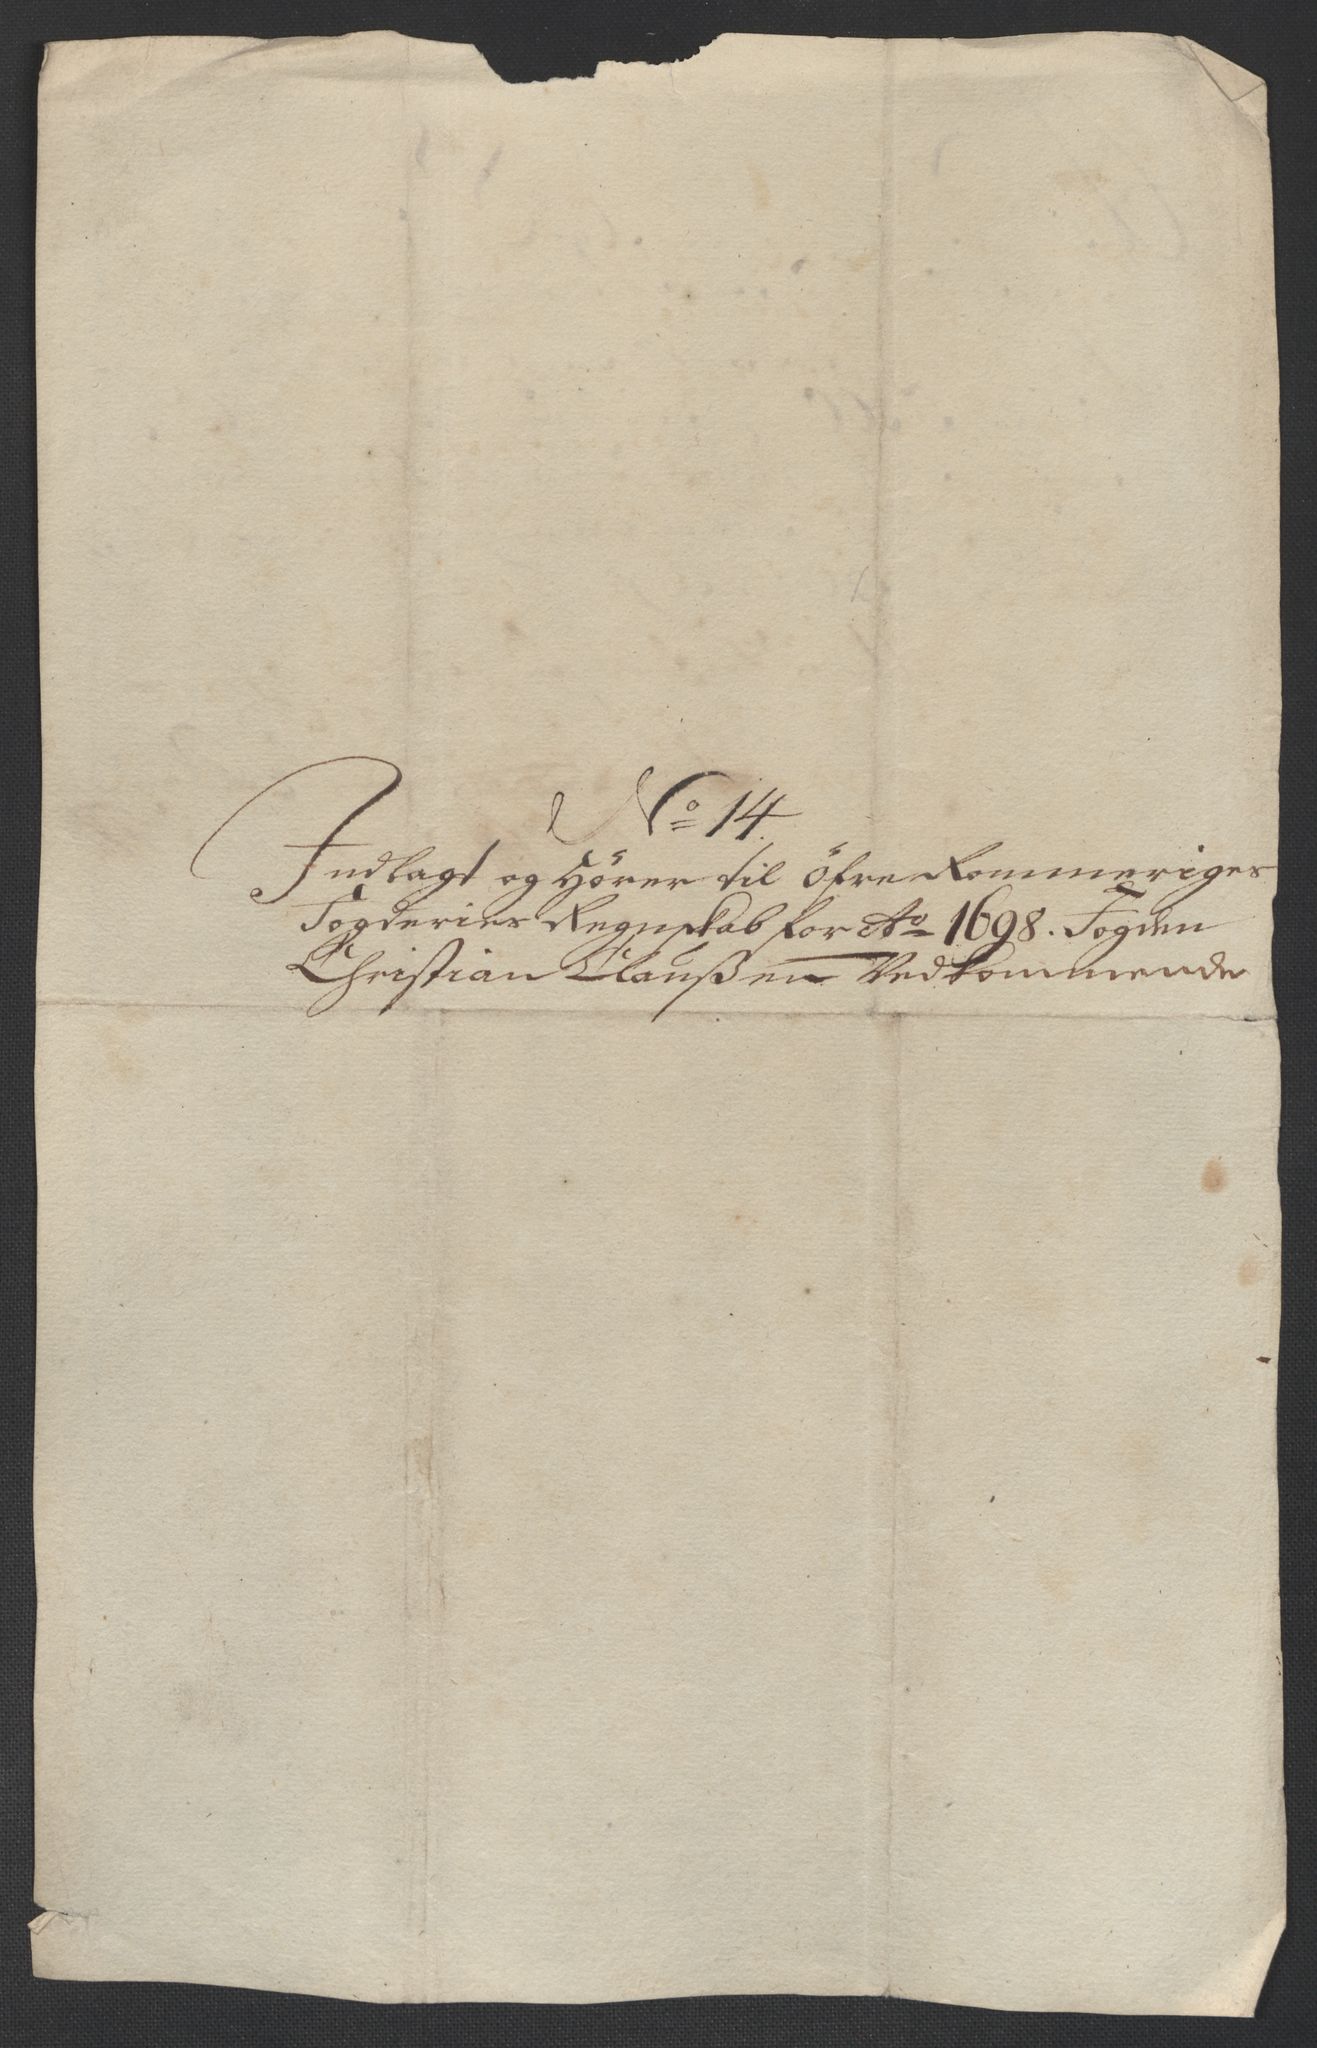 No 14.
Indlagt og Hörer til Öfre Rommeriges
Fogderies Regnskab for Ao 1698. Fogden
Christian Claußen Vedkommende